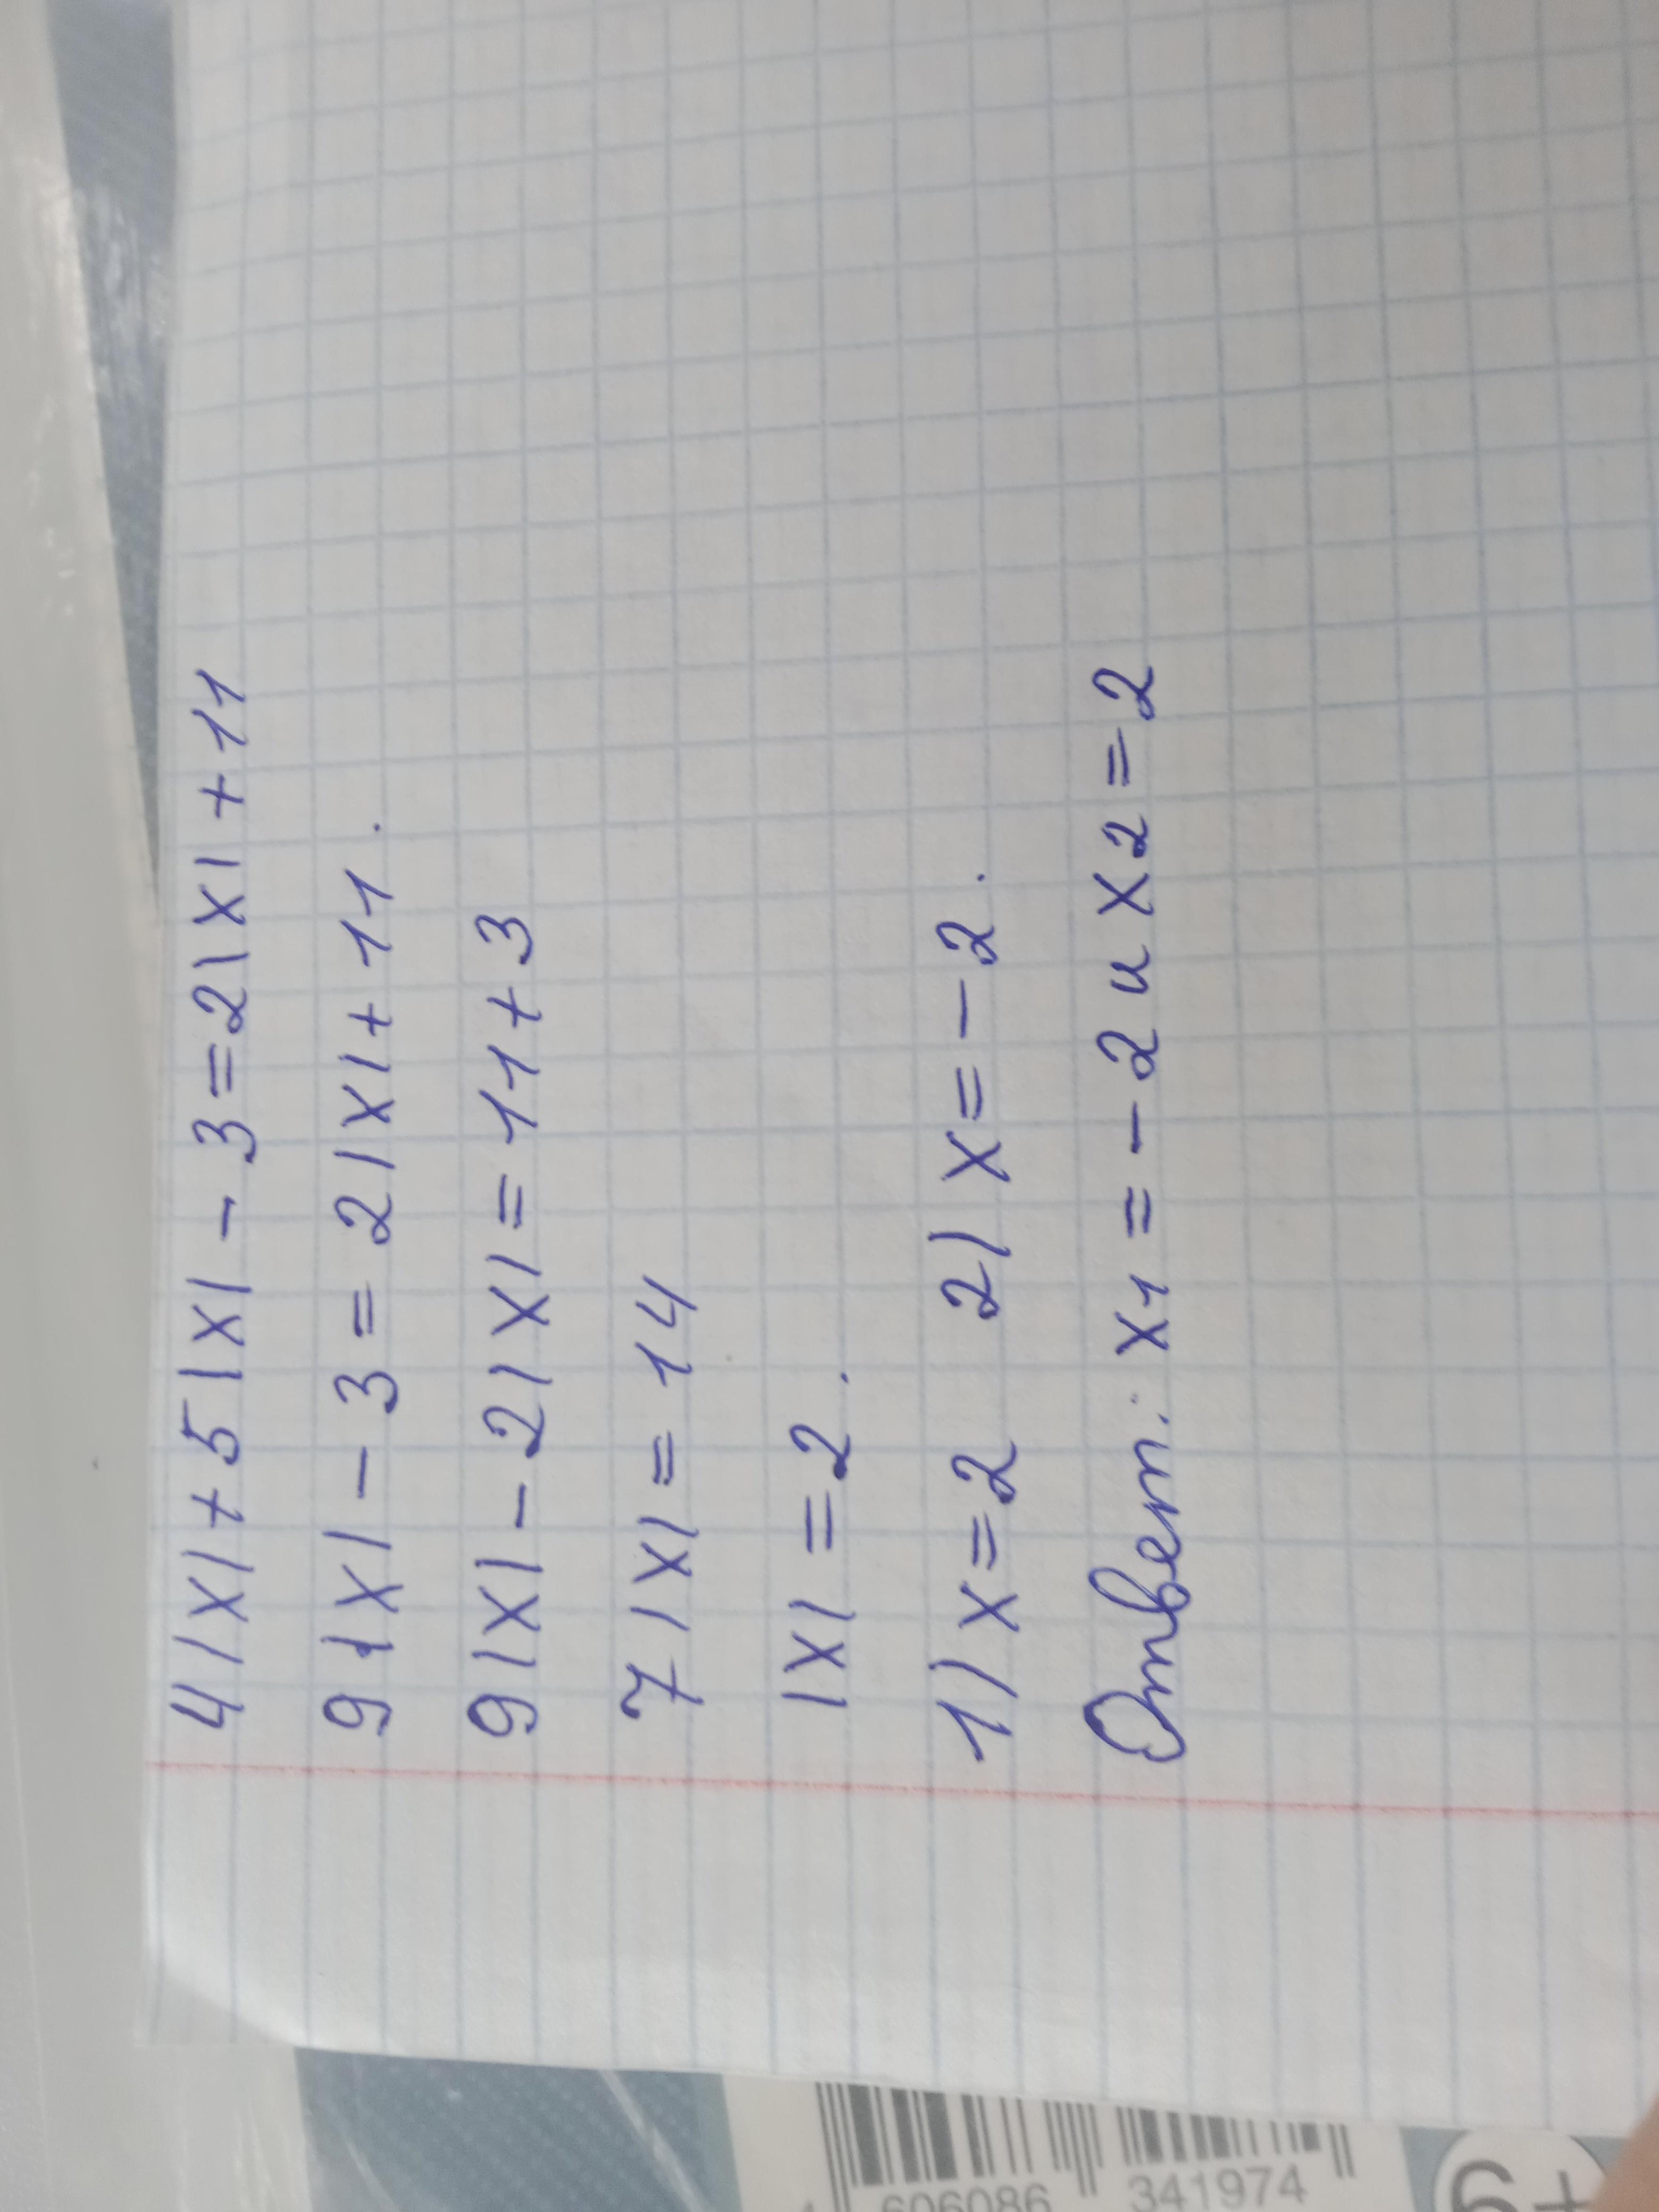 4|x|+5|x|-3=2|x|+11
9|x|-3=2|x|+11.
9|x|-2|x|=11+3
7|x|=14
|x|=2.
1) x=2 2) x=-2.
Ответ: x1=-2 и x2=2
606086 341974
6+